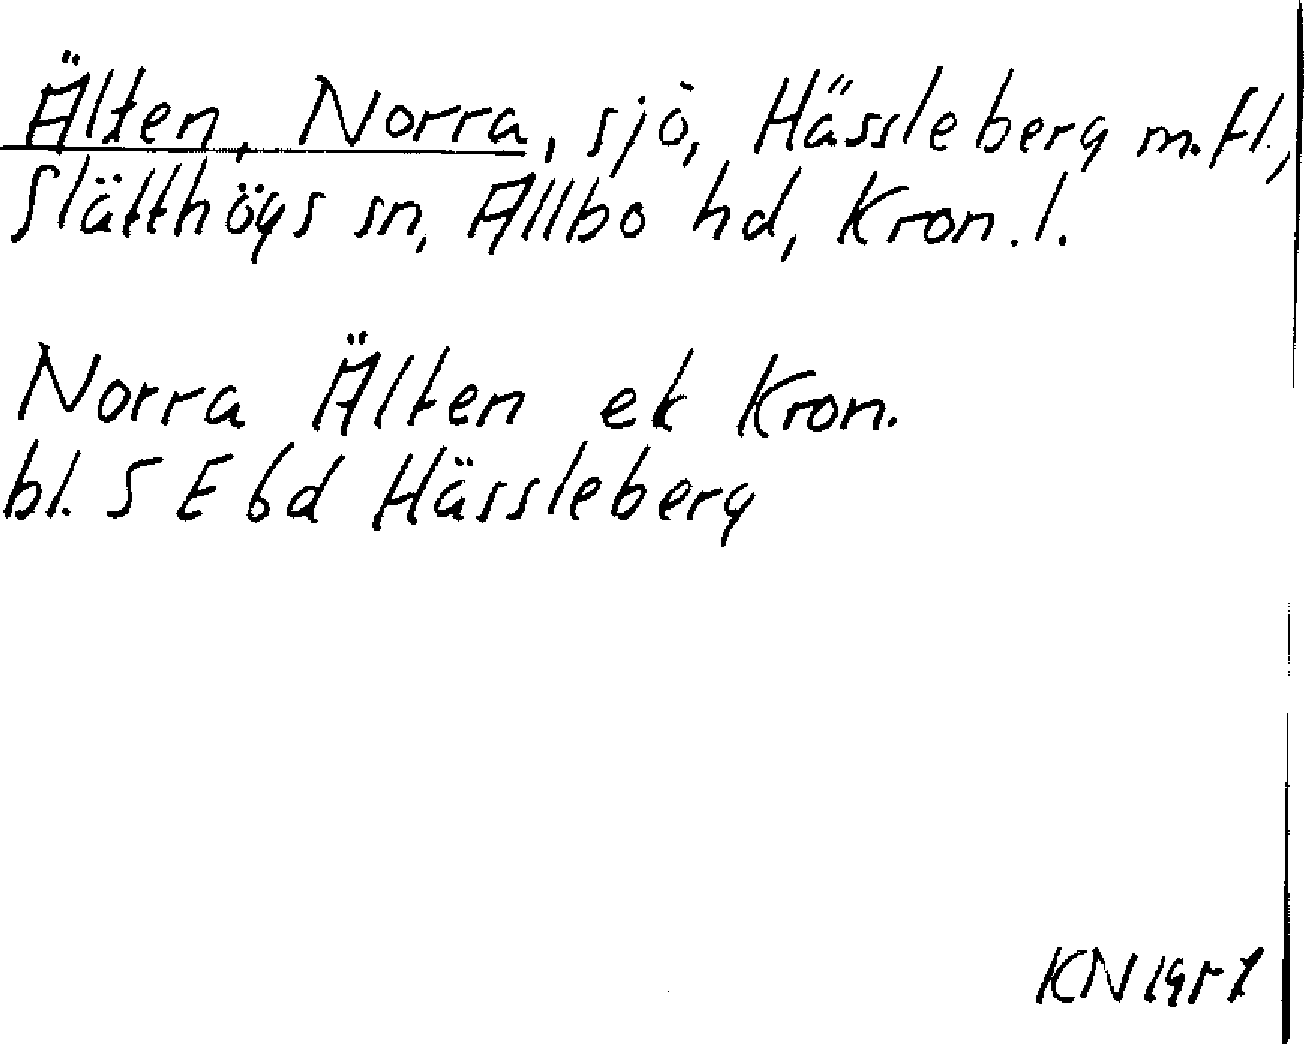 Älten, Norra, sjö, Hässleberg m.fl.,
Slätthögs sn, Allbo hd, Kron.l.
Norra Älten ek Kron.
bl. 5 E 6d Hässleberg
KN 1951